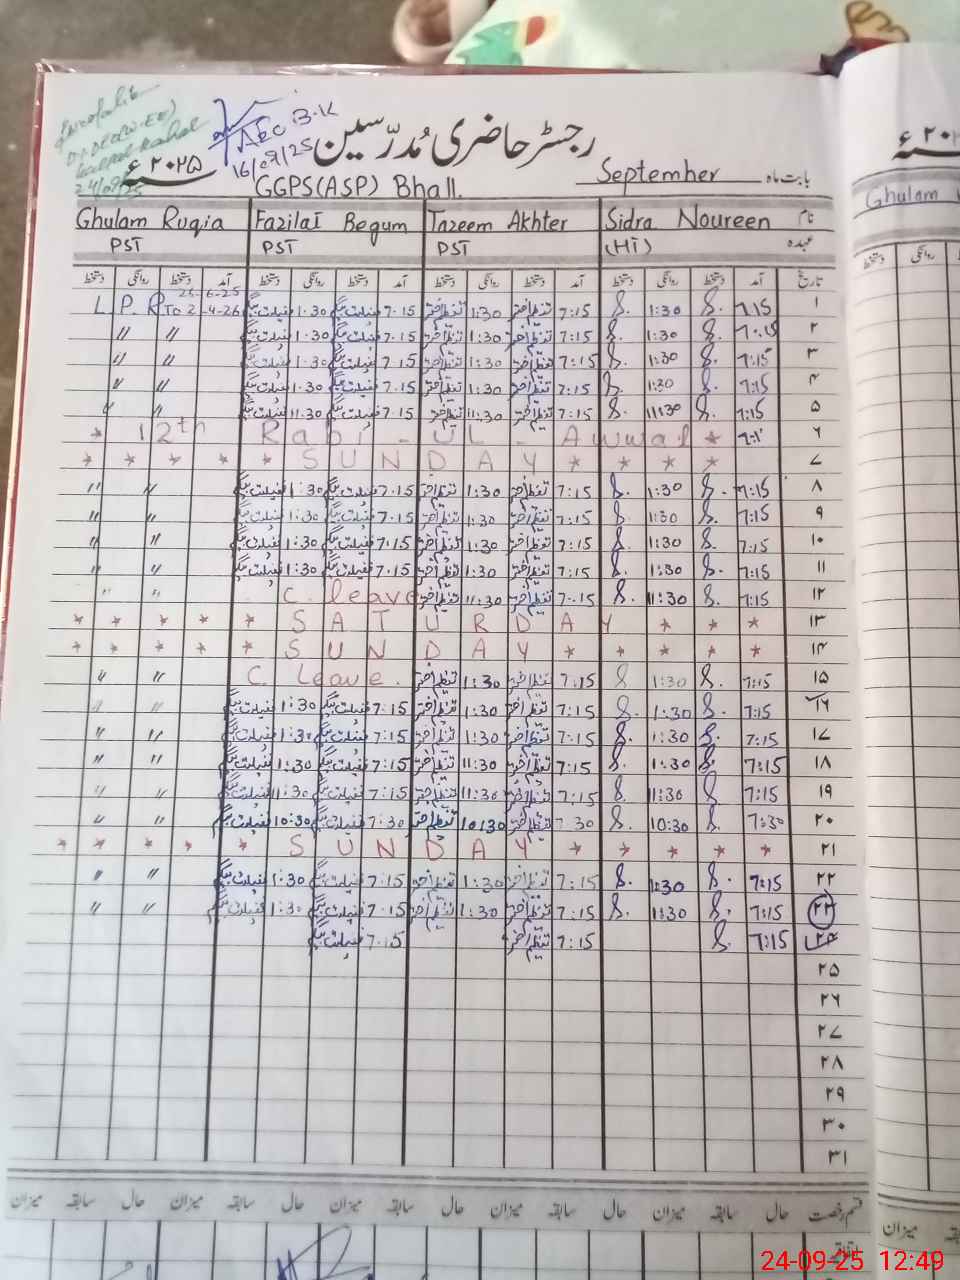 رجسٹر حاضری مُدرّسین
AEO B.K
16/09/25
24/09/25
۲۰۲۵ ؁ء
بابت ماہ September
GGPS(ASP) Bhall.
نام Sidra Noureen Tazeem Akhter Fazilat Begum Ghulam Ruqia
عہدہ (HT) PST PST PST
تاریخ آمد دستخط روانگی دستخط آمد دستخط روانگی دستخط آمد دستخط روانگی دستخط آمد دستخط روانگی دستخط
۱ 7:15 S. 1:30 S. 7:15 تنظیم اختر 1:30 تنظیم اختر 7.15 فضیلت بیگم 1.30 فضیلت بیگم L P R 25-6-25 To 2-4-26
۲ 7:15 S. 1:30 S. 7:15 تنظیم اختر 1:30 تنظیم اختر 7.15 فضیلت بیگم 1.30 فضیلت بیگم " "
۳ 7:15 S. 1:30 S. 7:15 تنظیم اختر 1:30 تنظیم اختر 7.15 فضیلت بیگم 1.30 فضیلت بیگم " "
۴ 7:15 S. 1:30 S. 7:15 تنظیم اختر 1:30 تنظیم اختر 7.15 فضیلت بیگم 1.30 فضیلت بیگم " "
۵ 7:15 S. 11:30 S. 7:15 تنظیم اختر 11:30 تنظیم اختر 7.15 فضیلت بیگم 11.30 فضیلت بیگم " "
۶ * 12th Rabi - UL - Awwal *
۷ * * * * * SUNDAY * * * *
۸ 7:15 S. 1:30 S. 7:15 تنظیم اختر 1:30 تنظیم اختر 7.15 فضیلت بیگم 1.30 فضیلت بیگم " "
۹ 7:15 S. 1:30 S. 7:15 تنظیم اختر 1:30 تنظیم اختر 7.15 فضیلت بیگم 1:30 فضیلت بیگم " "
۱۰ 7:15 S. 1:30 S. 7:15 تنظیم اختر 1:30 تنظیم اختر 7:15 فضیلت بیگم 1:30 فضیلت بیگم " "
۱۱ 7:15 S. 1:30 S. 7:15 تنظیم اختر 1:30 تنظیم اختر 7.15 فضیلت بیگم 1:30 فضیلت بیگم " "
۱۲ 7:15 S. 11:30 S. 7:15 تنظیم اختر 11:30 تنظیم اختر C. leave " "
۱۳ * * * * * SATURDAY * * *
۱۴ * * * * * SUNDAY * * * * *
۱۵ 7:15 S. 1:30 S 7:15 تنظیم اختر 1:30 تنظیم اختر C. Leave. " "
۱۶ 7:15 S. 1:30 S. 7:15 تنظیم اختر 1:30 تنظیم اختر 7:15 فضیلت بیگم 1:30 فضیلت بیگم " "
۱۷ 7:15 S. 1:30 S. 7:15 تنظیم اختر 1:30 تنظیم اختر 7.15 فضیلت بیگم 1:30 فضیلت بیگم " "
۱۸ 7:15 S. 1:30 S. 7:15 تنظیم اختر 11:30 تنظیم اختر 7:15 فضیلت بیگم 1:30 فضیلت بیگم " "
۱۹ 7:15 S. 11:30 S. 7:15 تنظیم اختر 11:30 تنظیم اختر 7:15 فضیلت بیگم 11:30 فضیلت بیگم " "
۲۰ 7:30 S. 10:30 S. 7:30 تنظیم اختر 10:30 تنظیم اختر 7:30 فضیلت بیگم 10:30 فضیلت بیگم " "
۲۱ * * * * * SUNDAY * * * * *
۲۲ 7:15 S. 1:30 S. 7:15 تنظیم اختر 1:30 تنظیم اختر 7.15 فضیلت بیگم 1:30 فضیلت بیگم " "
۲۳ 7:15 S. 1:30 S. 7:15 تنظیم اختر 1:30 تنظیم اختر 7.15 فضیلت بیگم 1:30 فضیلت بیگم " "
۲۴ 7:15 S. 7:15 تنظیم اختر 7.15 فضیلت بیگم
۲۵
۲۶
۲۷
۲۸
۲۹
۳۰
۳۱
قسم رخصت حال سابقہ میزان حال سابقہ میزان حال سابقہ میزان حال سابقہ میزان
اتفاقیہ
Ghulam
دستخط روانگی
میزان
24-09-25 12:49